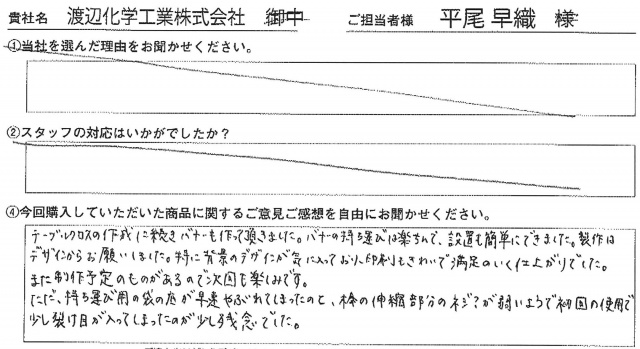 貴社名 渡辺化学工業株式会社 御中 ご担当者様 平尾 早織 様
①当社を選んだ理由をお聞かせください。
②スタッフの対応はいかがでしたか？
④今回購入していただいた商品に関するご意見ご感想を自由にお聞かせください。
テーブルクロスの作成に続きバナーも作って頂きました。バナーの持ち運びは楽ちんで、設置も簡単にできました。製作は
デザインからお願いしました。特に背景のデザインが気に入っており、印刷もきれいで満足のいく仕上がりでした。
また制作予定のものがあるので次回も楽しみです。
ただ、持ち運び用の袋の底が早速やぶれてしまったのと、棒の伸縮部分のネジが弱いようで初回の使用で
少し裂け目が入ってしまったのが少し残念でした。